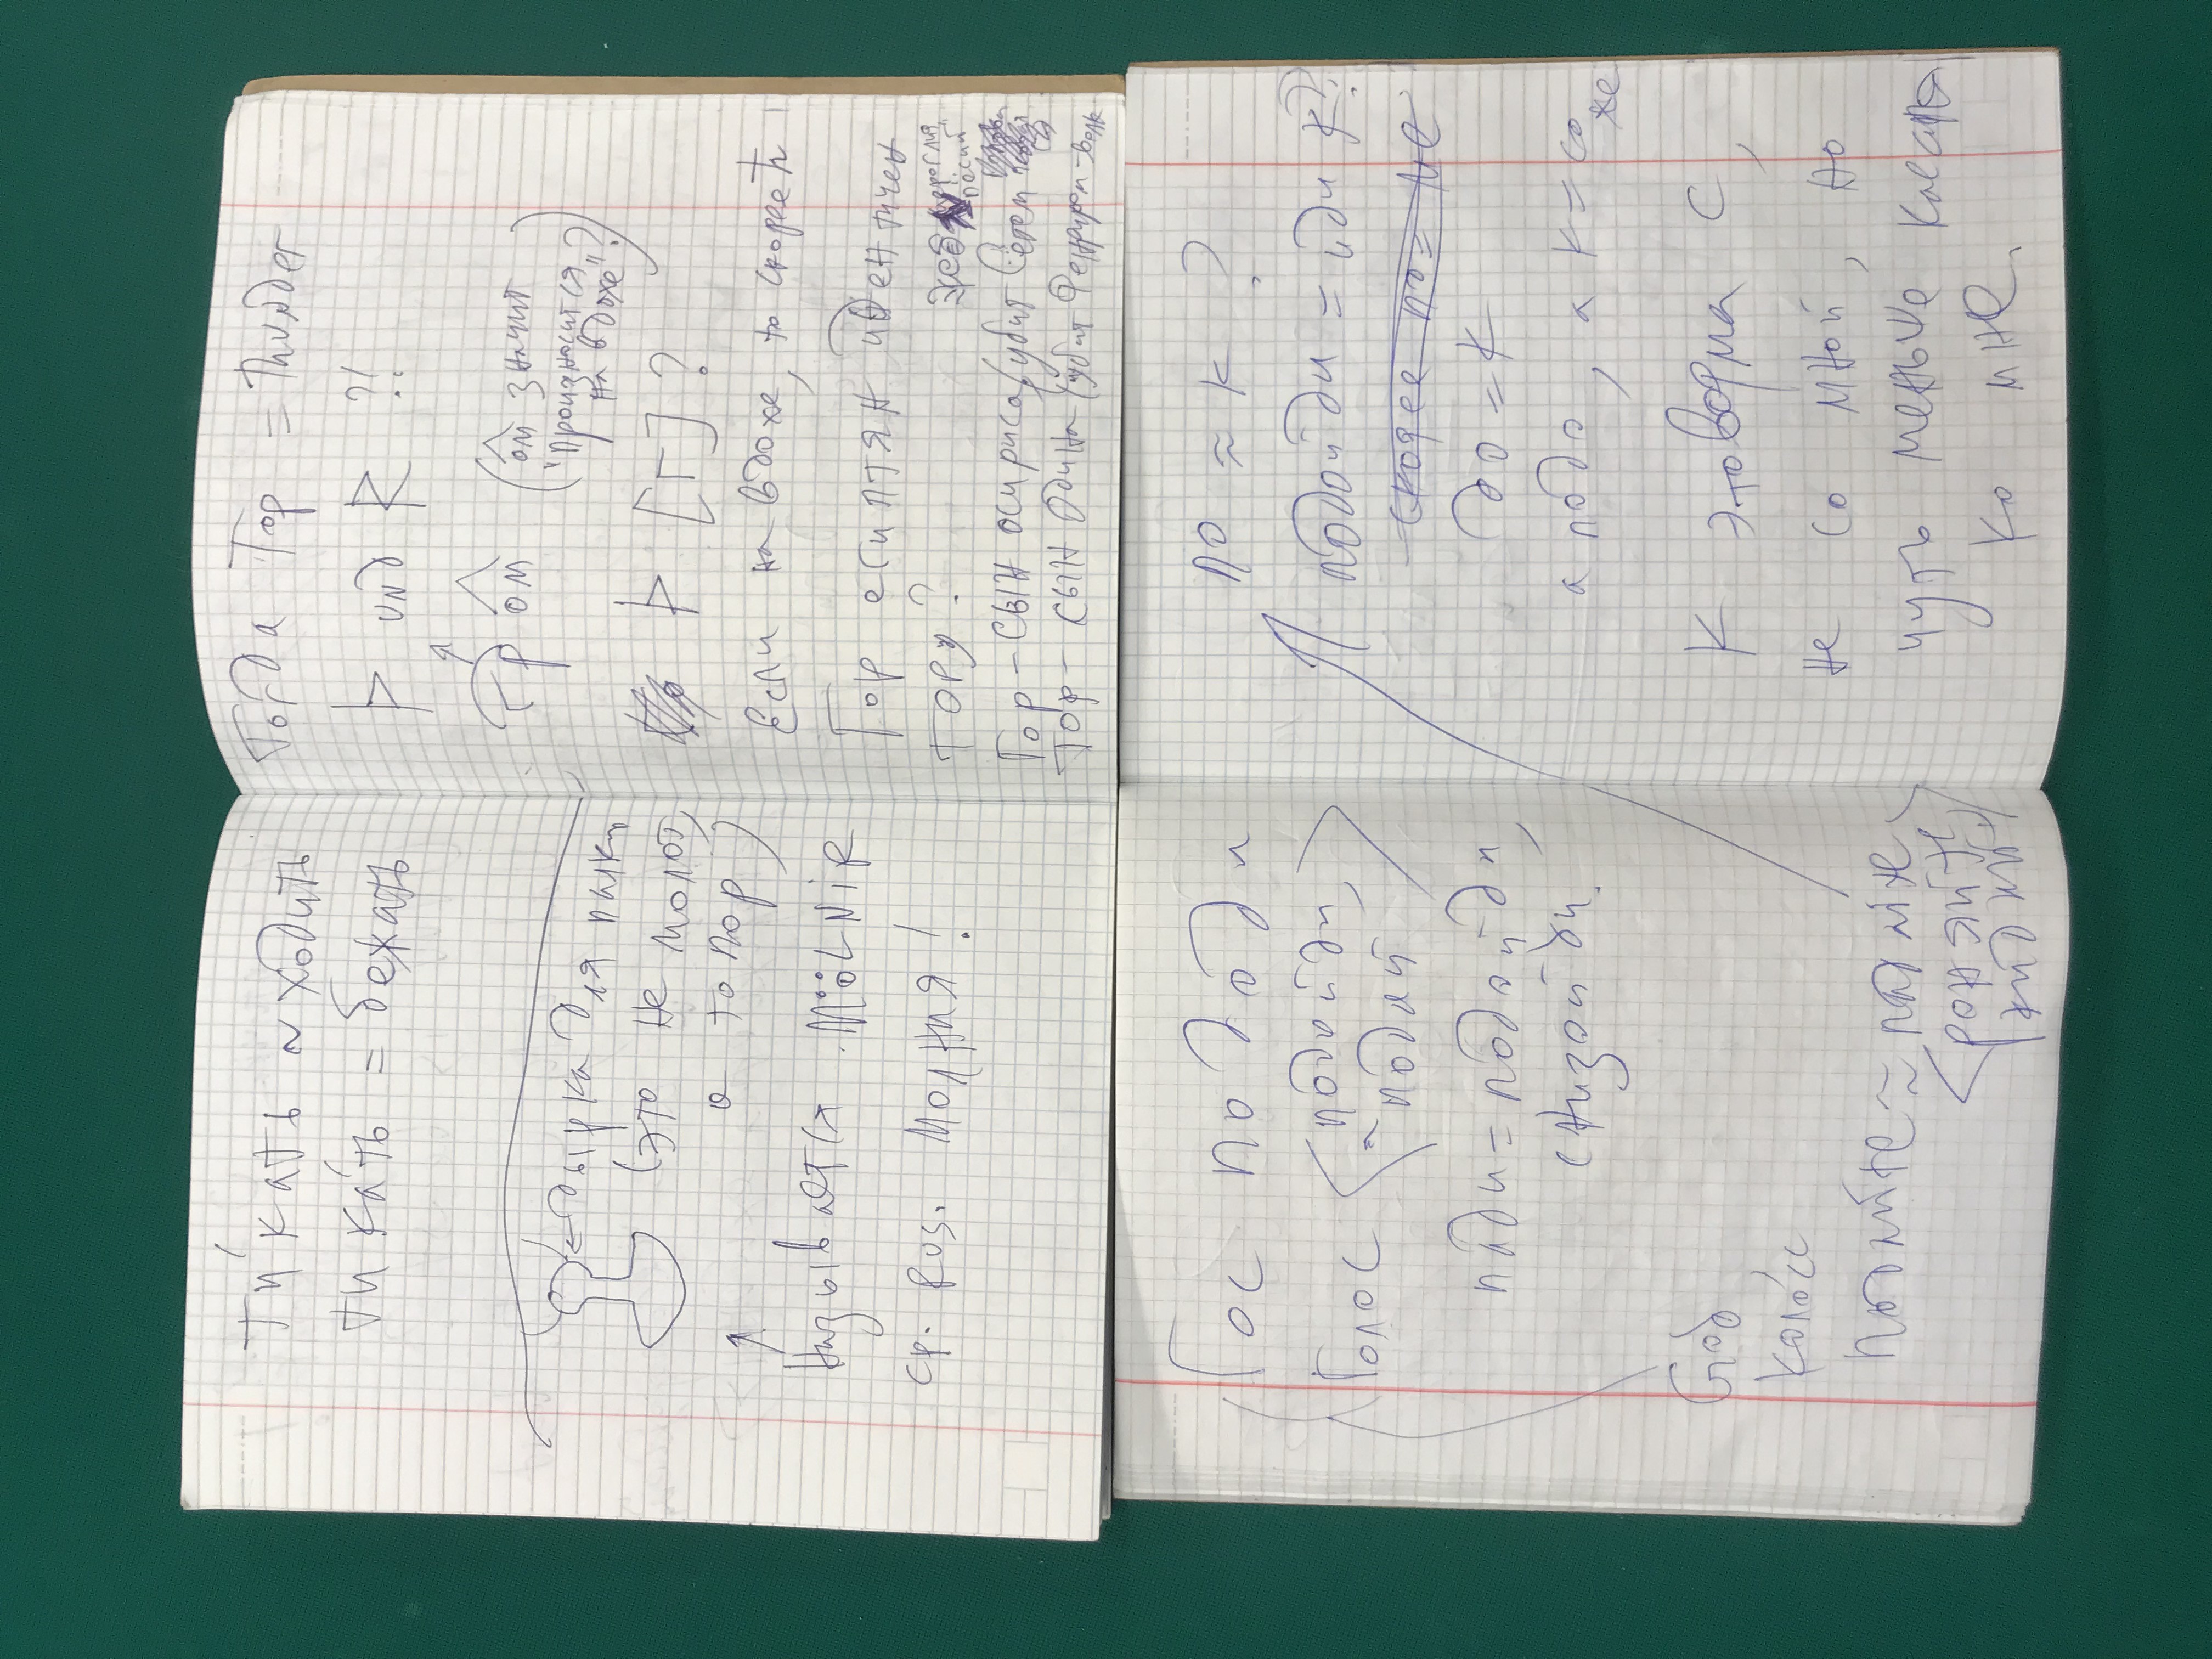 ти́кать ~ ходить
тика́ть = бежать
← дырка для палки
(это не молот,
а топор)
Называется MÖLNiR
ср. Rus. Молния!
Тогда Тор = Thunder
Þ und R ?!
Гр ом
(ом значит
"произносится
на вдохе"?)
Þ [Г] ?
Если на вдохе, то скорее ћ
Гор египтян идентичен
Тору?
Гор – сын осириса/убит Сетом
Тор – сын Одина/убит Фенриром-волк
Гос по до ди
Голос < подойди,
~ подай >
пади = подойди,
снизойди.
God,
коло́сс
подайте ≈ падайте
<роняйте,
по ≈ к ?
подойди = иди к??
скорее по = не
до = к
а подо, а к = со
же
К это ворма С,
не со мной, но
чуть меньше касаясь
ко мне.